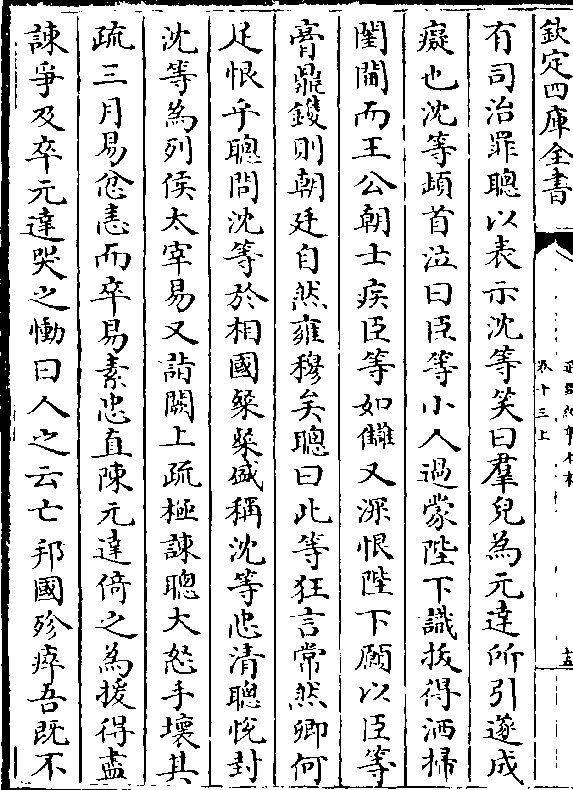 欽定四庫全書
通鑑紀事本末
卷十三上
十五
有司治罪聰以表示沈等笑曰羣兒為元達所引遂成
癡也沈等頓首泣曰臣等小人過蒙陛下識拔得洒掃
閨閤而王公朝士疾臣等如讎又深恨陛下願以臣等
膏鼎鑊則朝廷自然雍穆矣聰曰此等狂言常然卿何
足恨乎聰問沈等於相國粲粲盛稱沈等忠清聰悅封
沈等為列侯太宰易又詣闕上疏極諫聰大怒手壞其
疏三月易忿恚而卒易素忠直陳元達倚之為援得盡
諫爭及卒元達哭之慟曰人之云亡邦國殄瘁吾既不